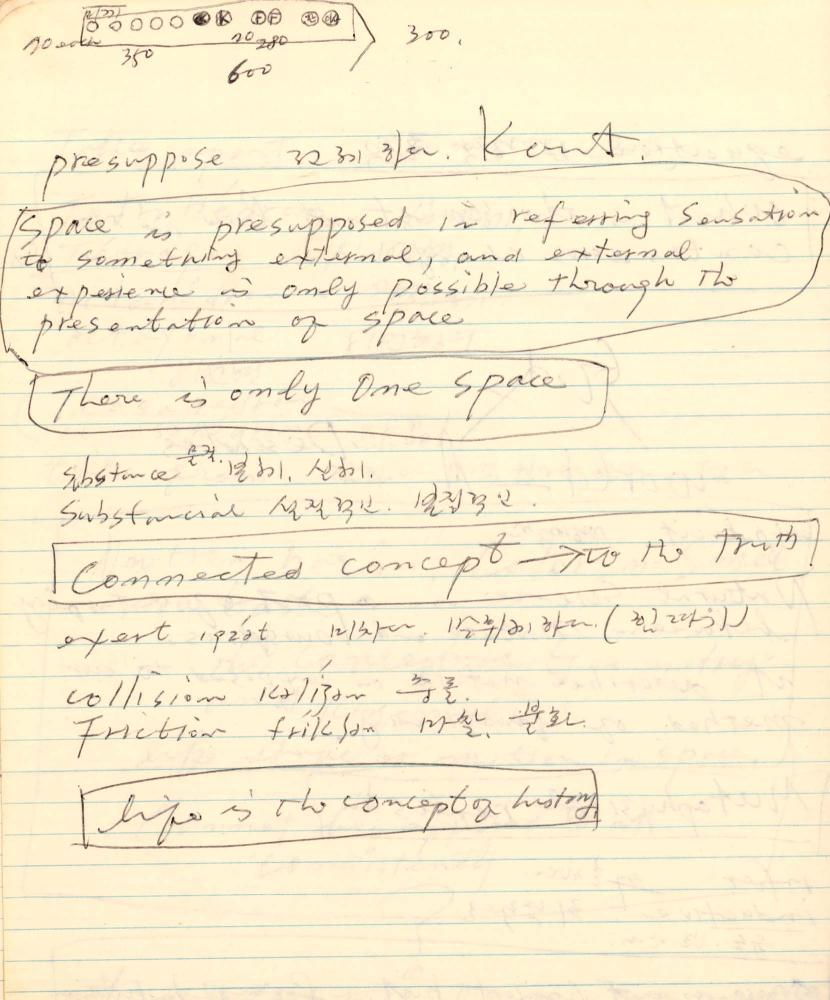 70 each
350
20 280
600
300.
presuppose 전제 하다. Kant.
Space is presupposed in referring Sensation
to something external, and external
experience is only possible through the
presentation of space
There is only One Space
substance 물질. 본체. 실체.
Substancial 실질적인.
Connected concept → to the truth
exert igzət 미치다. 발휘하다. (힘 따위)
collision kəlíʒən 충돌.
Friction fríkʃən 마찰. 불화.
life is the concept of history